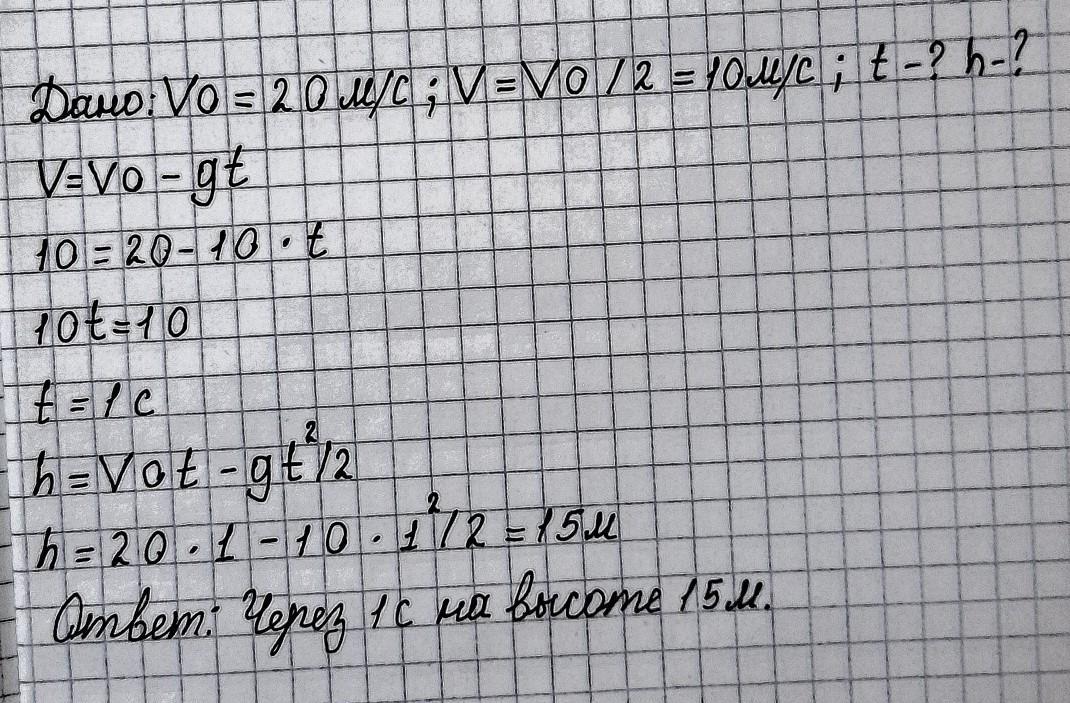 Дано: V0 = 20 м/с ; V = V0 / 2 = 10 м/с ; t - ? h - ?
V = V0 - gt
10 = 20 - 10 · t
10t = 10
t = 1 с
h = V0t - gt²/2
h = 20 · 1 - 10 · 1²/2 = 15 м
Ответ: Через 1 с на высоте 15 м.